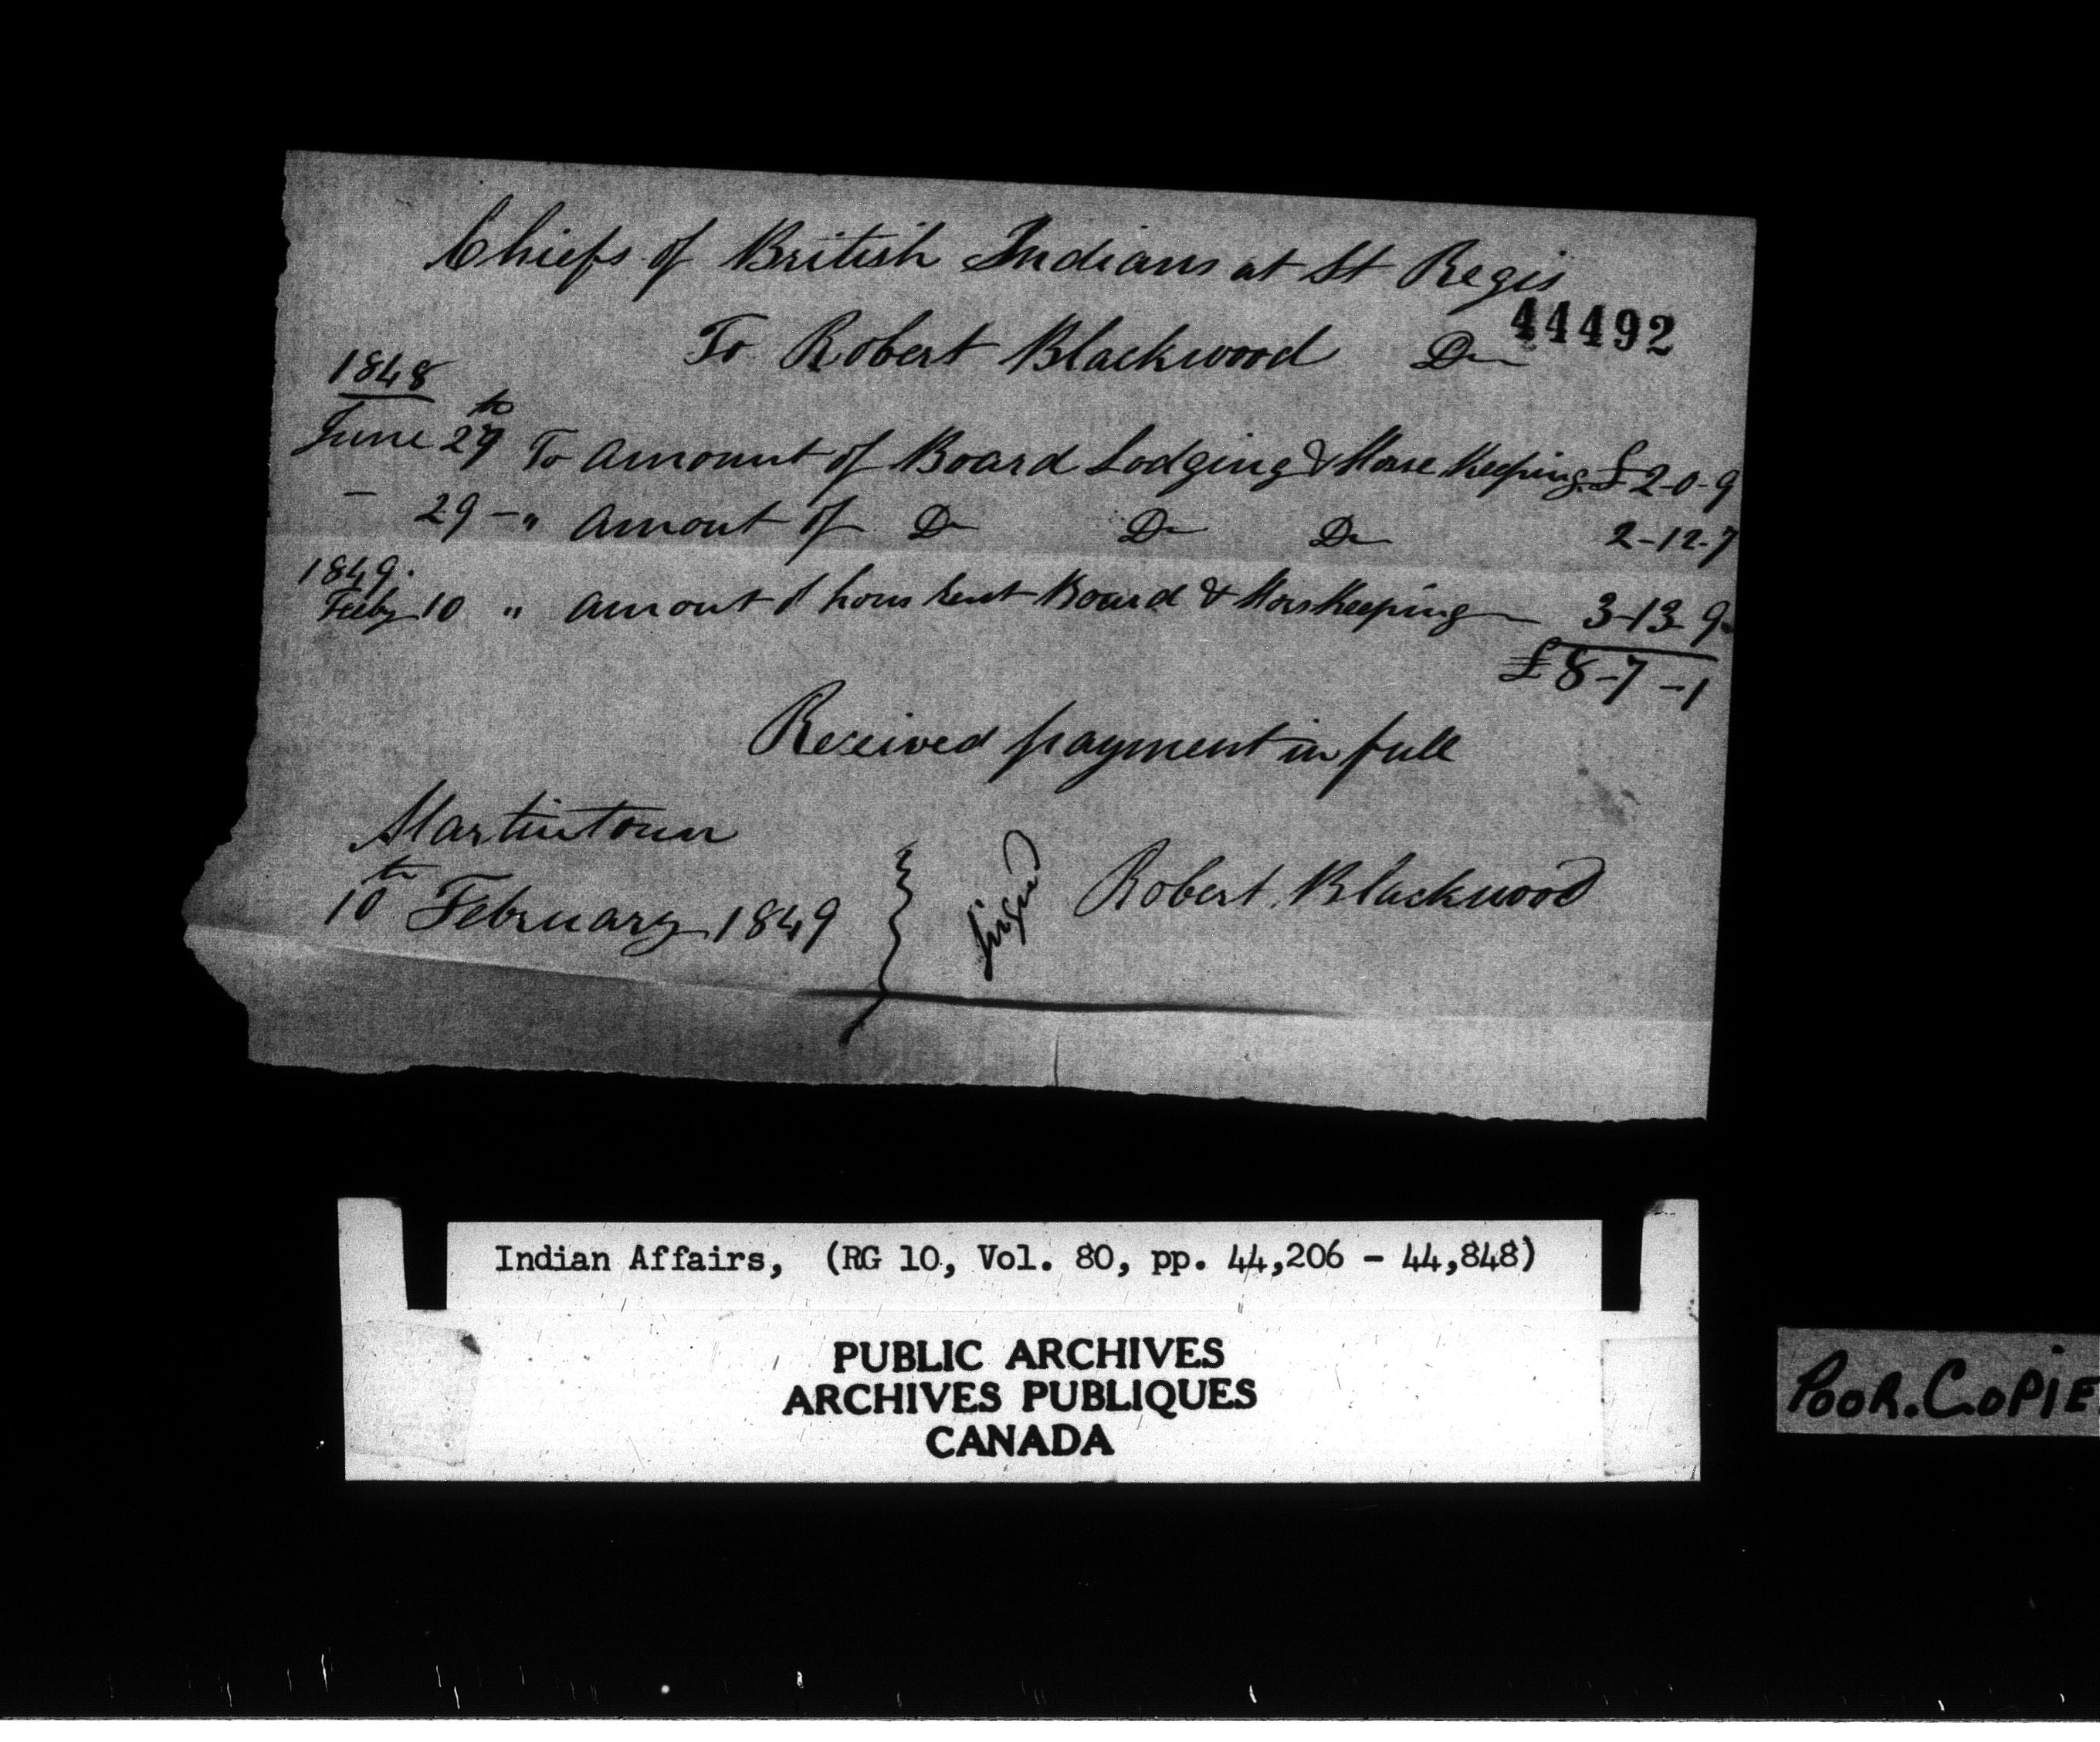 Chiefs of British Indians at St Regis
44492
To Robert Blackwood Dr
1848
June 29 to To Amount of Board Lodging & Horse Keeping £2-0-9
— 29 - " Amount of Do Do Do 2-12-7
1849.
Feeby 10 " Amount hous rent Board & Hors Keeping 3-13-9
£8-7-1
Received payment in full
Martintown
10th February 1849
signed
Robert Blackwood
Indian Affairs, (RG 10, Vol. 80, pp. 44,206 - 44,848)
PUBLIC ARCHIVES
ARCHIVES PUBLIQUES
CANADA
POOR. COPIE